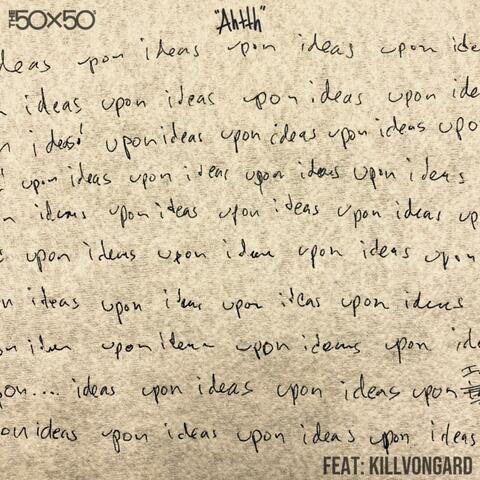 THE 50×50 "Ahtth"
deas upon ideas upon ideas upon ide
n ideas upon ideas upon ideas upon ide
n ideas! upon ideas upon ideas upon ideas upo
upon ideas upon ideas upon ideas upon ideas
n ideas upon ideas upon ideas upon ideas up
s upon ideas upon ideas upon ideas upon
n ideas upon ideas upon ideas upon ideas
on ideas upon ideas upon ideas upon ide
pon.... ideas upon ideas upon ideas upon
on ideas upon ideas upon ideas upon ideas
FEAT: KILLVONGARD